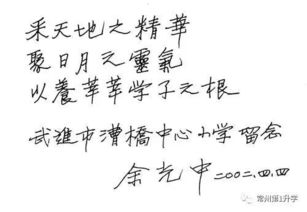 采天地之精華
聚日月之靈氣
以養莘莘学子之根
武進市漕橋中心小学留念
余光中 二〇〇二.四.四
常州第1升学